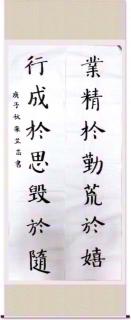 業精於勤荒於嬉
行成於思毀於隨
庚子秋朱芝高書